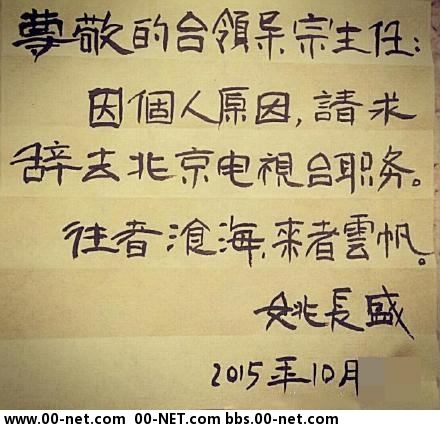 尊敬的台領导宗主任:
因個人原因,請求
辞去北京电視台职务。
往者滄海,來者雲帆。
姚長盛
2015年10月
www.00-net.com 00-NET.com bbs.00-net.com